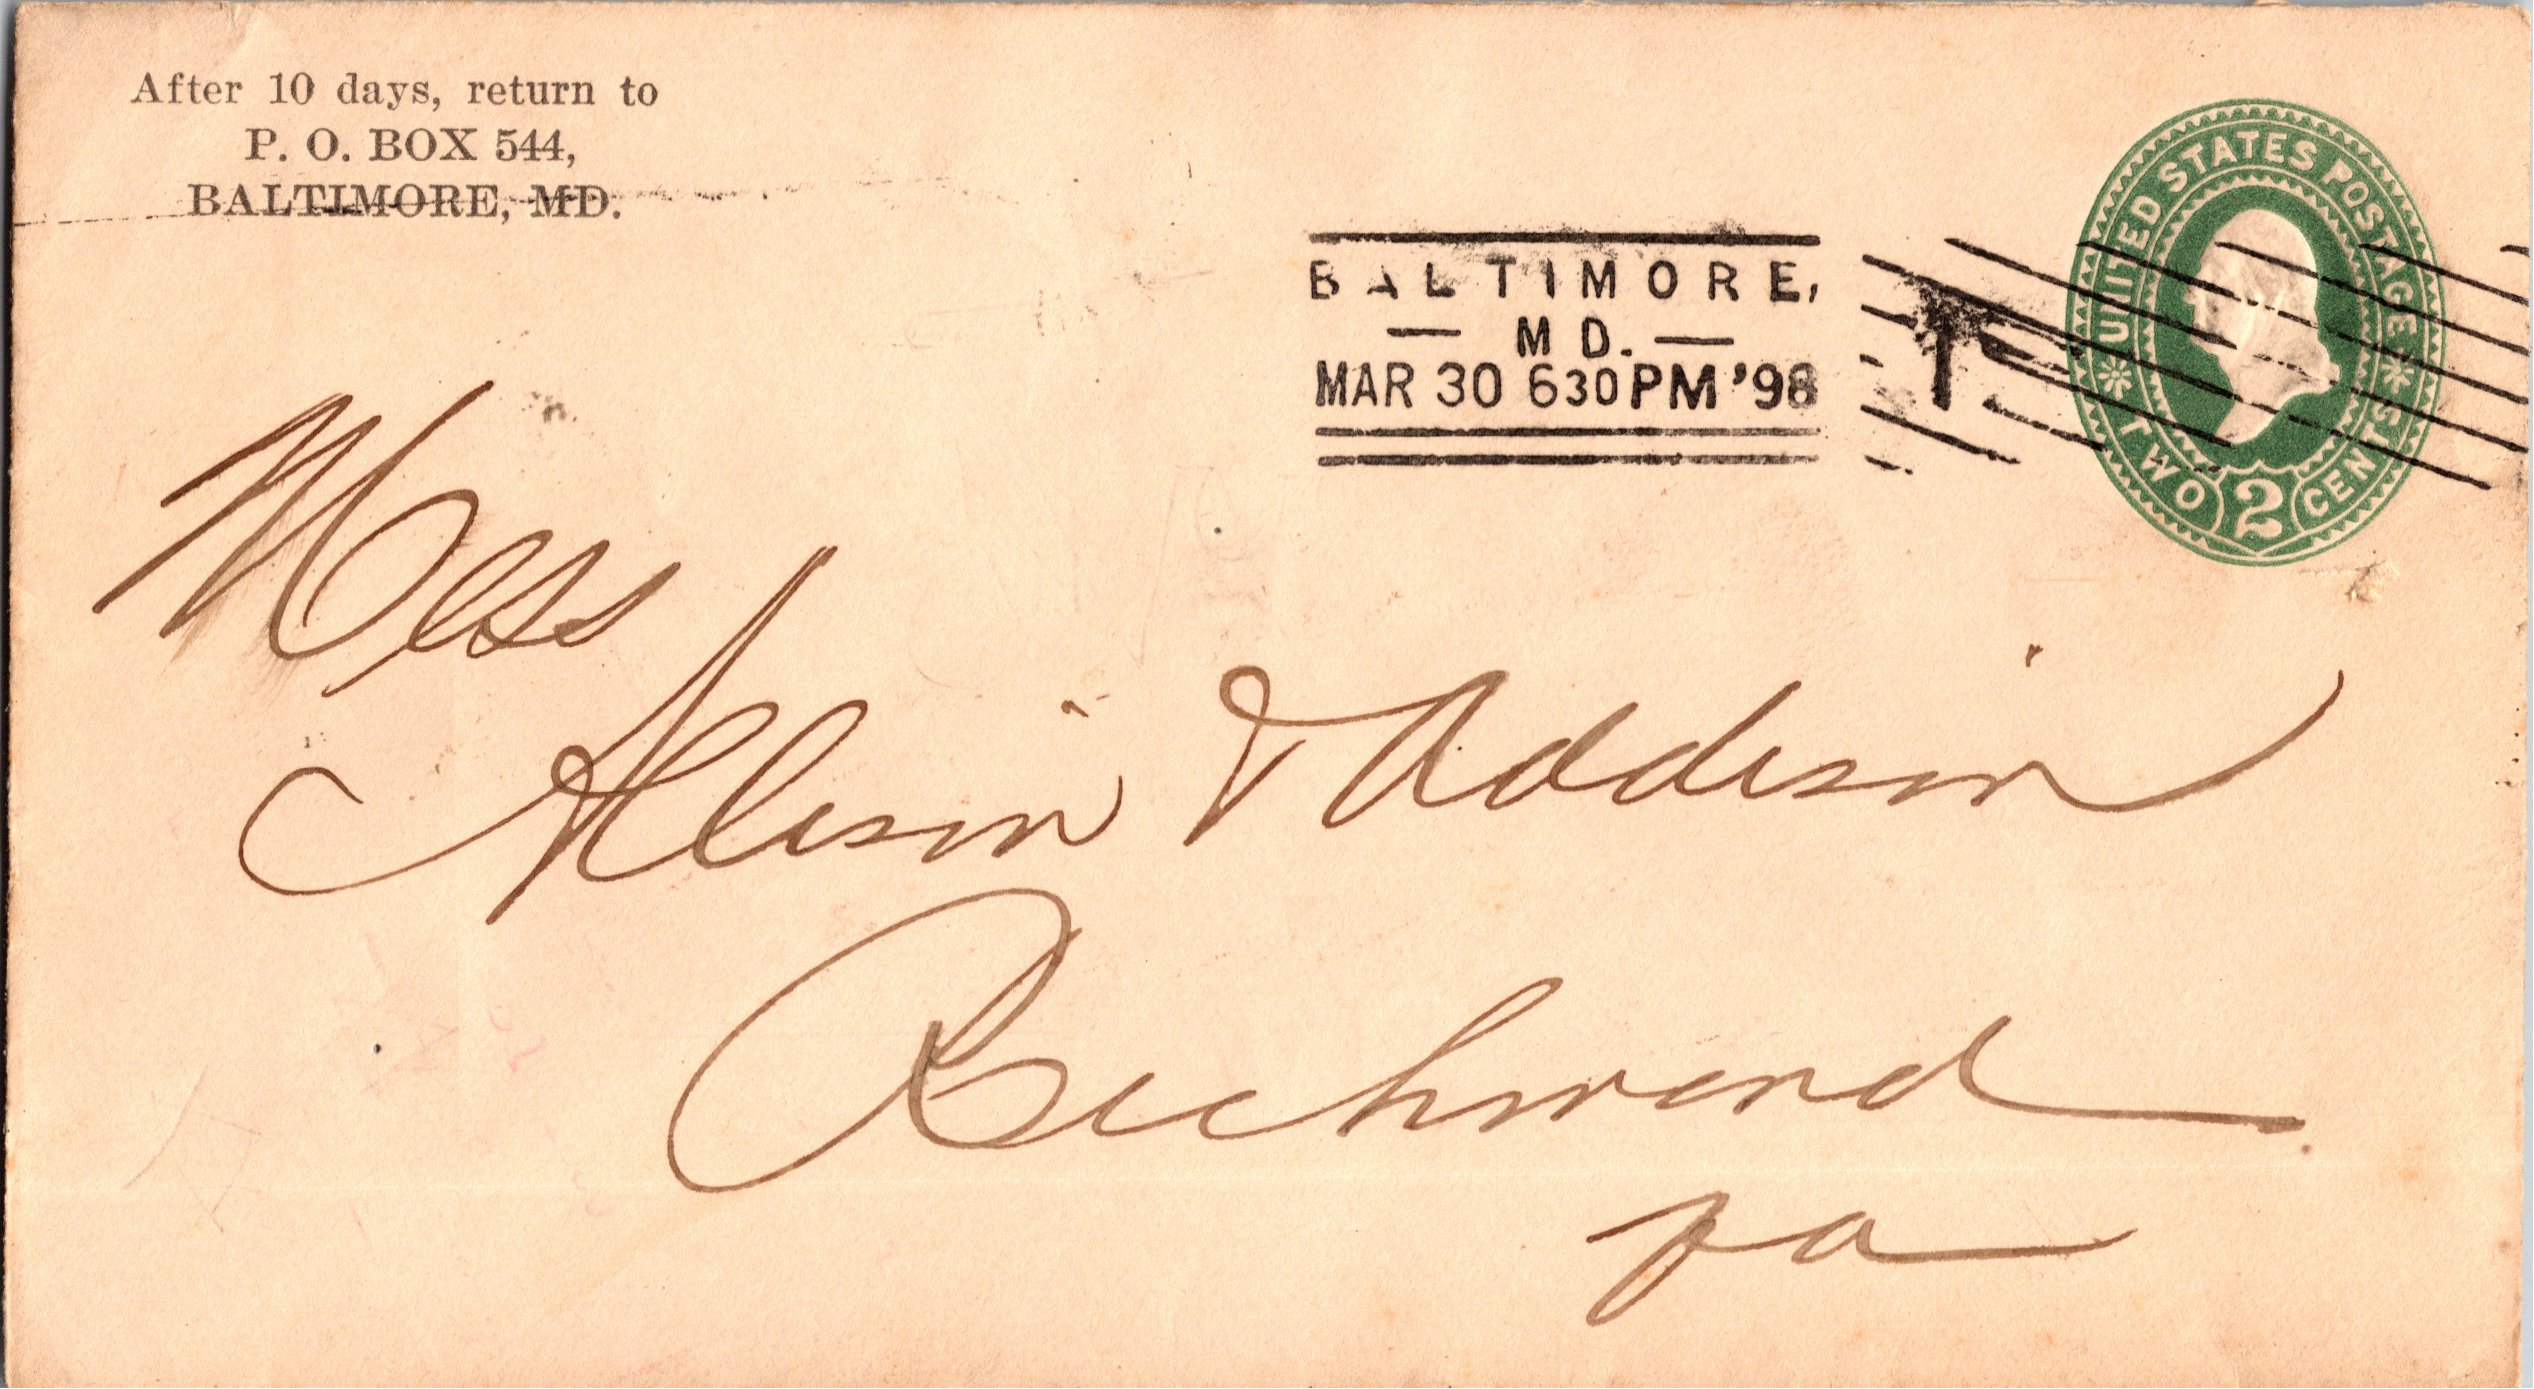 After 10 days, return to
P. O. BOX 544,
BALTIMORE, MD.
BALTIMORE,
— MD. —
MAR 30 630PM '98
1
UNITED STATES POSTAGE
TWO 2 CENTS
Mess
Allison & Addison
Richmond
Va